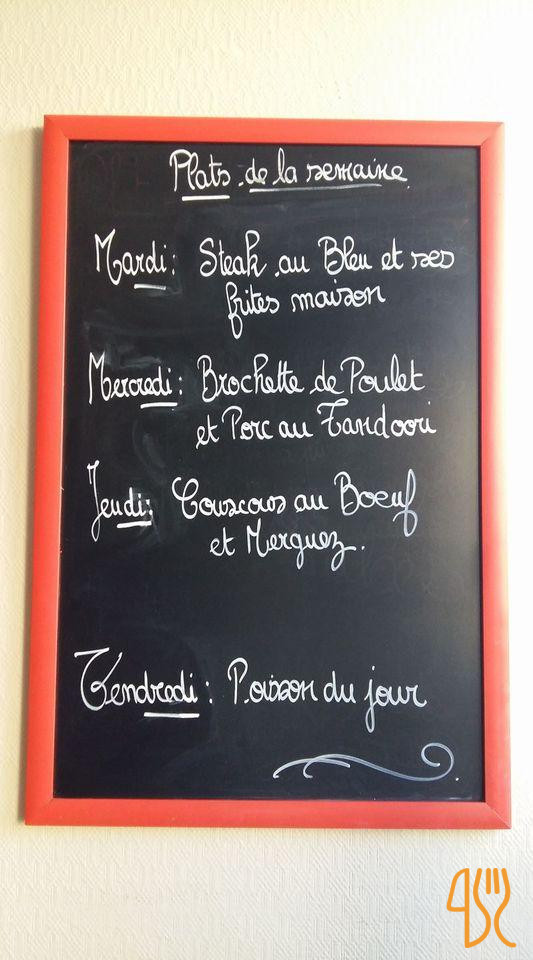 Plats de la semaine
Mardi: Steak au Bleu et ses
frites maison
Mercredi: Brochette de Poulet
et Porc au Tandoori
Jeudi: Couscous au Boeuf
et Merguez.
Vendredi: Poisson du jour